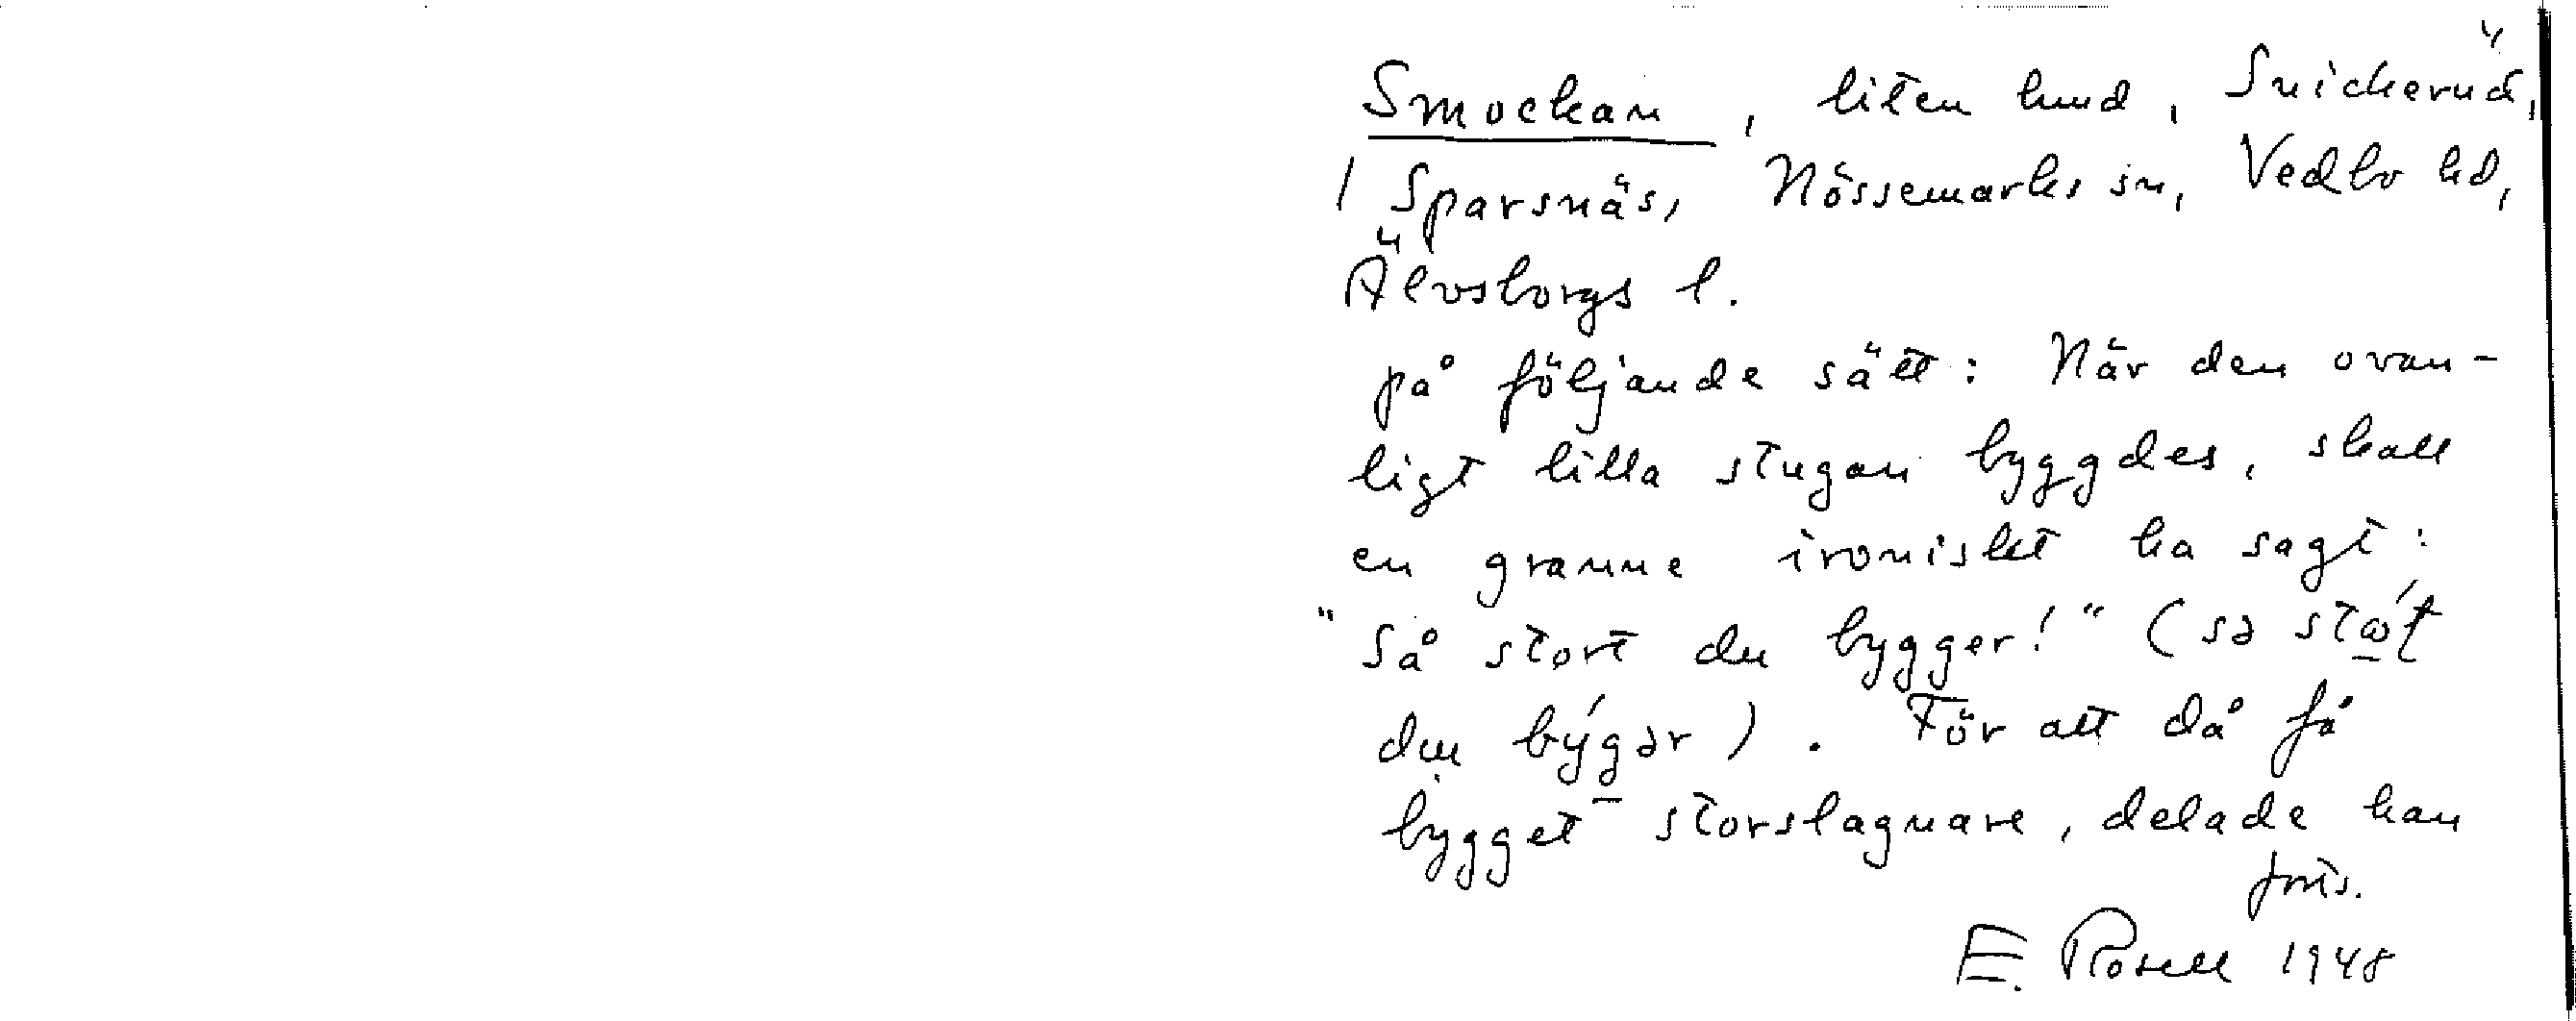 Smockan, liten lund, Snickerud,
/ Sparsnäs, Nössemarks sn, Vedbo hd,
Älvsborgs l.
på följande sätt: När den ovan-
ligt lilla stugan byggdes, skall
en granne ironiskt ha sagt:
"Så stort du bygger!" (sə stót
du býgər). För att då få
bygget storslagnare, delade han
forts.
E. Rosell 1948